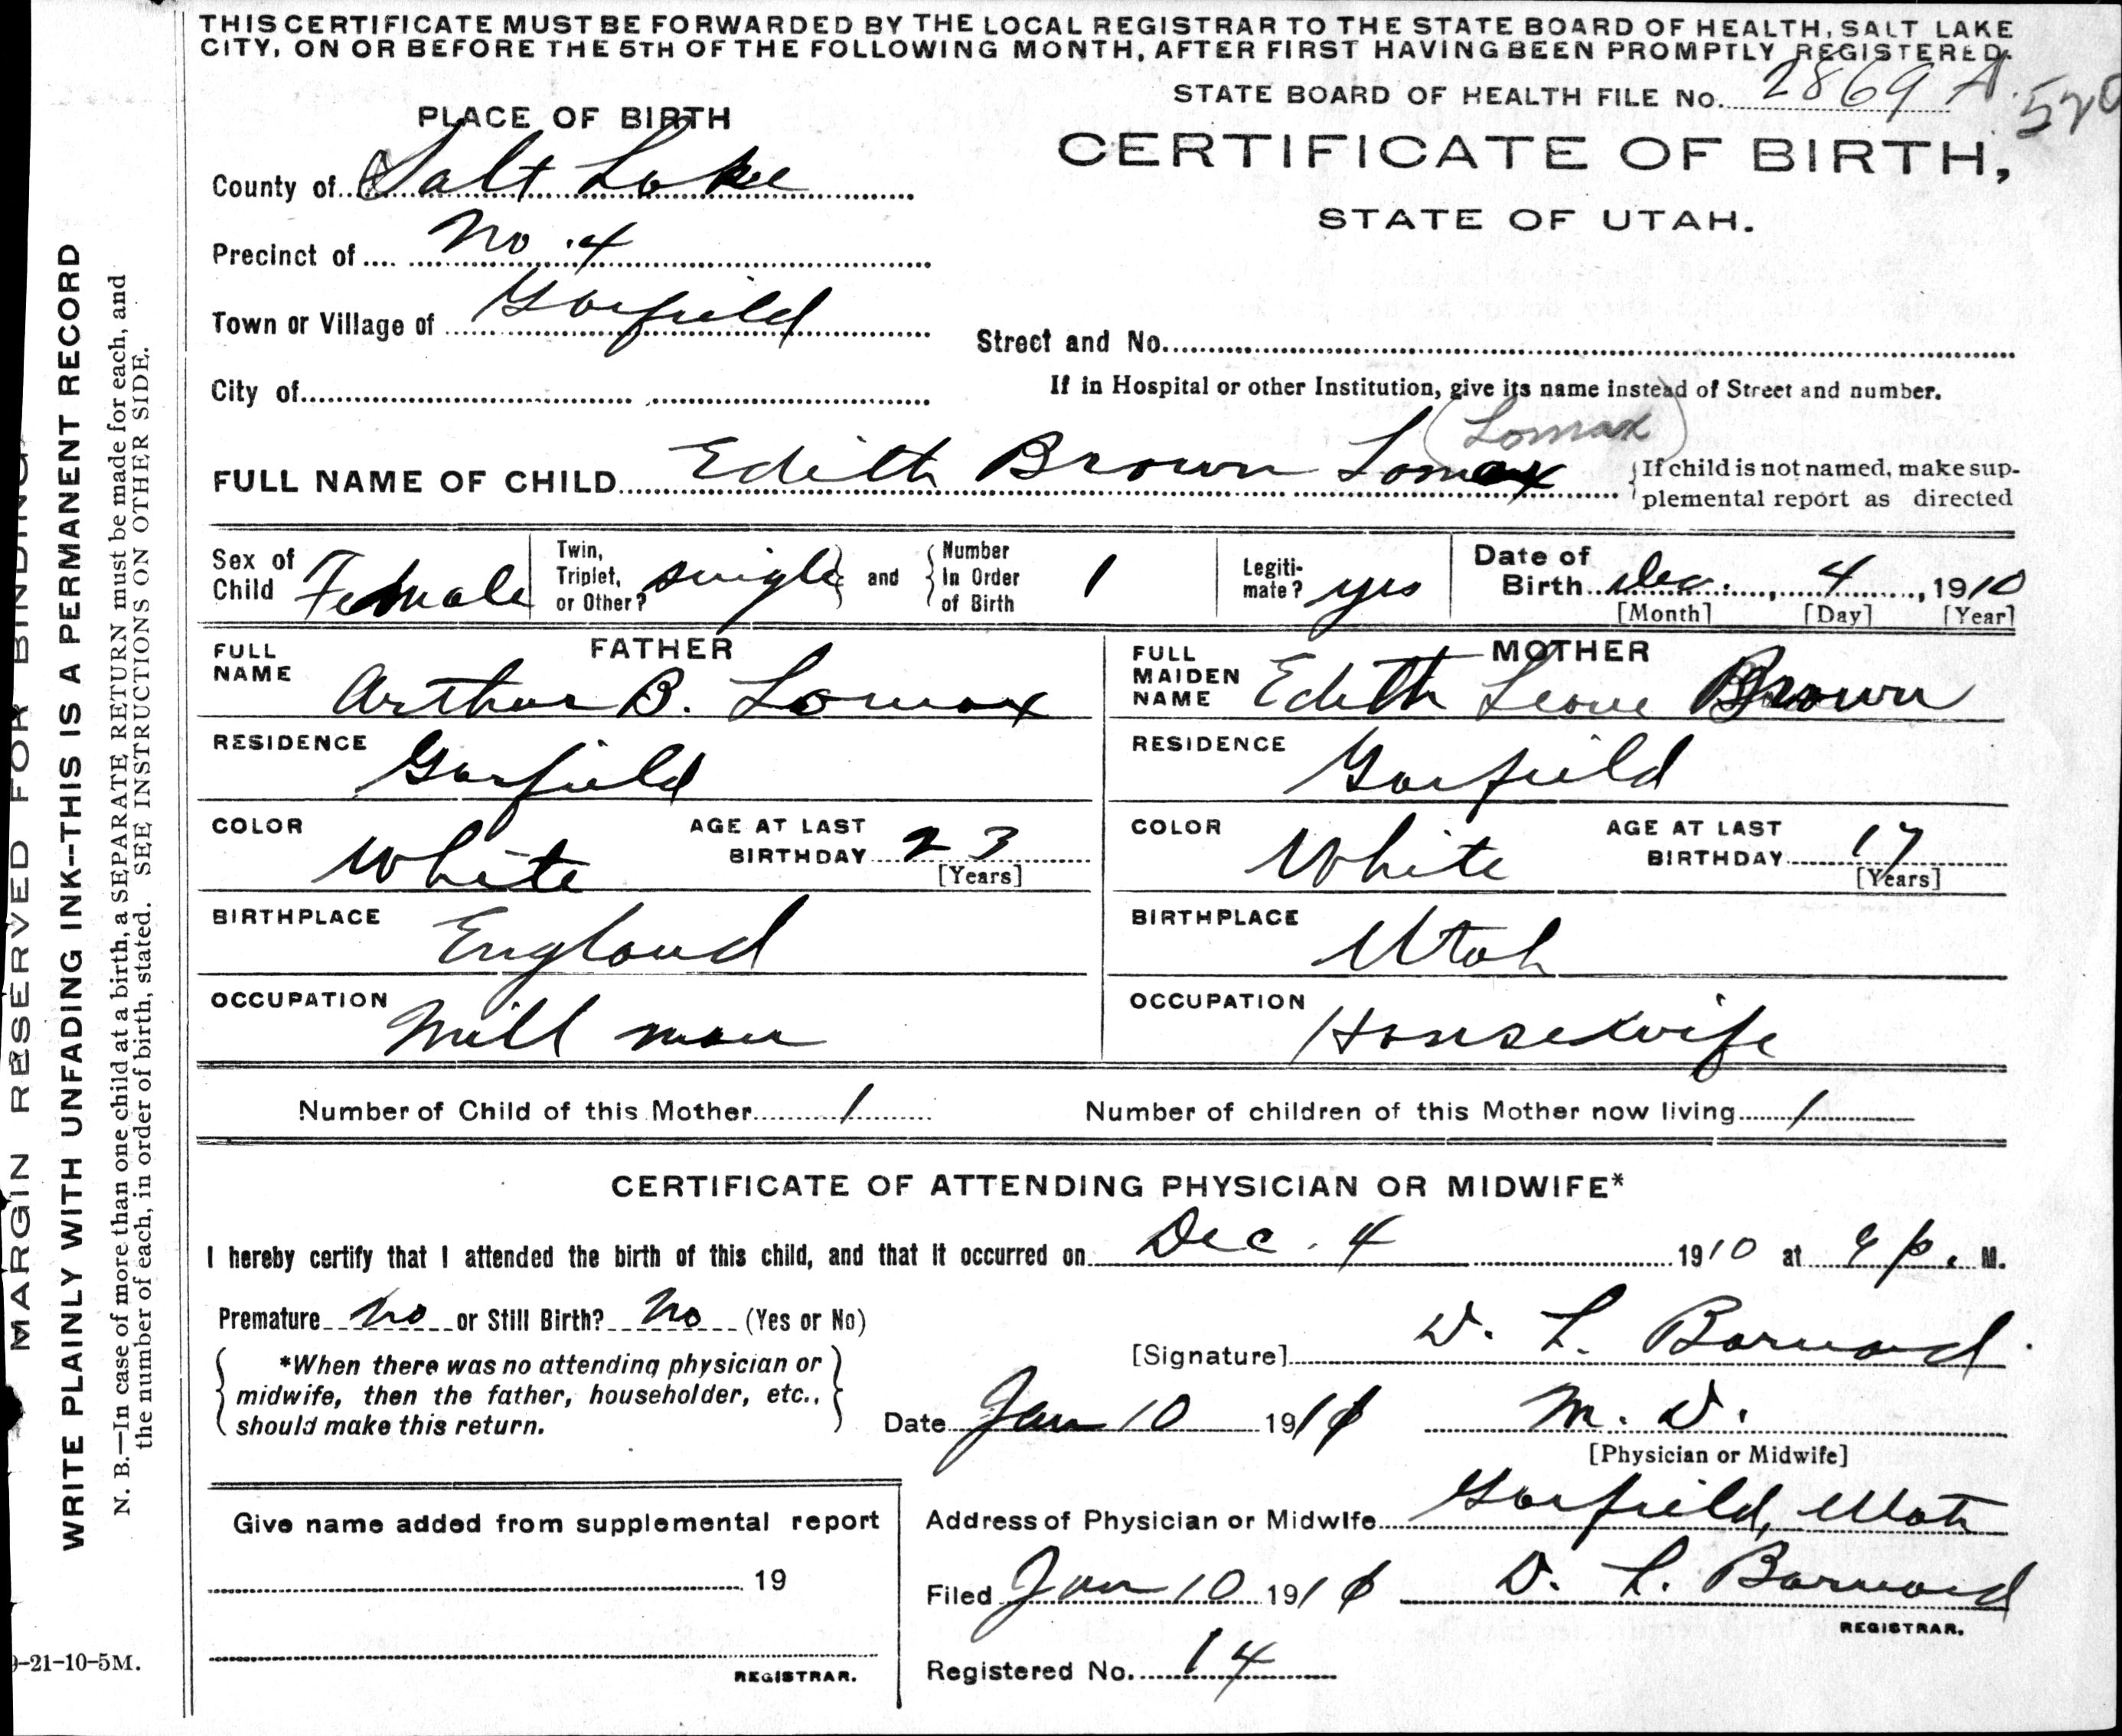 THIS CERTIFICATE MUST BE FORWARDED BY THE LOCAL REGISTRAR TO THE STATE BOARD OF HEALTH, SALT LAKE
CITY, ON OR BEFORE THE 5TH OF THE FOLLOWING MONTH, AFTER FIRST HAVING BEEN PROMPTLY REGISTERED.
STATE BOARD OF HEALTH FILE No. 2869 A. 520
PLACE OF BIRTH
CERTIFICATE OF BIRTH,
STATE OF UTAH.
County of Salt Lake
Precinct of No. 4
Town or Village of Garfield
Street and No.
City of
If in Hospital or other Institution, give its name instead of Street and number.
(Lomax)
FULL NAME OF CHILD Edith Brown Lomax
{If child is not named, make sup-
plemental report as directed
Sex of Child Female
Twin, Triplet, or Other? single } and { Number In Order of Birth 1
Legiti-mate? yes
Date of Birth Dec. , 4 , 1910
[Month] [Day] [Year]
FATHER
FULL NAME Arthur B. Lomax
RESIDENCE Garfield
COLOR White
AGE AT LAST BIRTHDAY 23
[Years]
BIRTHPLACE England
OCCUPATION Mill man
MOTHER
FULL MAIDEN NAME Edith Leone Brown
RESIDENCE Garfield
COLOR White
AGE AT LAST BIRTHDAY 17
[Years]
BIRTHPLACE Utah
OCCUPATION Housewife
Number of Child of this Mother 1
Number of children of this Mother now living 1
CERTIFICATE OF ATTENDING PHYSICIAN OR MIDWIFE*
I hereby certify that I attended the birth of this child, and that it occurred on Dec. 4 1910 at 9 p. M.
Premature No or Still Birth? No (Yes or No)
{ *When there was no attending physician or
midwife, then the father, householder, etc.,
should make this return. }
[Signature] D. L. Barnard
Date Jan 10 191
M. D.
[Physician or Midwife]
Address of Physician or Midwife Garfield, Utah
Filed Jan 10 191 D. L. Barnard
REGISTRAR.
Registered No. 14
Give name added from supplemental report
19
REGISTRAR.
MARGIN RESERVED FOR BINDING
WRITE PLAINLY WITH UNFADING INK--THIS IS A PERMANENT RECORD
N. B.—In case of more than one child at a birth, a SEPARATE RETURN must be made for each, and
the number of each, in order of birth, stated. SEE INSTRUCTIONS ON OTHER SIDE.
9-21-10-5M.